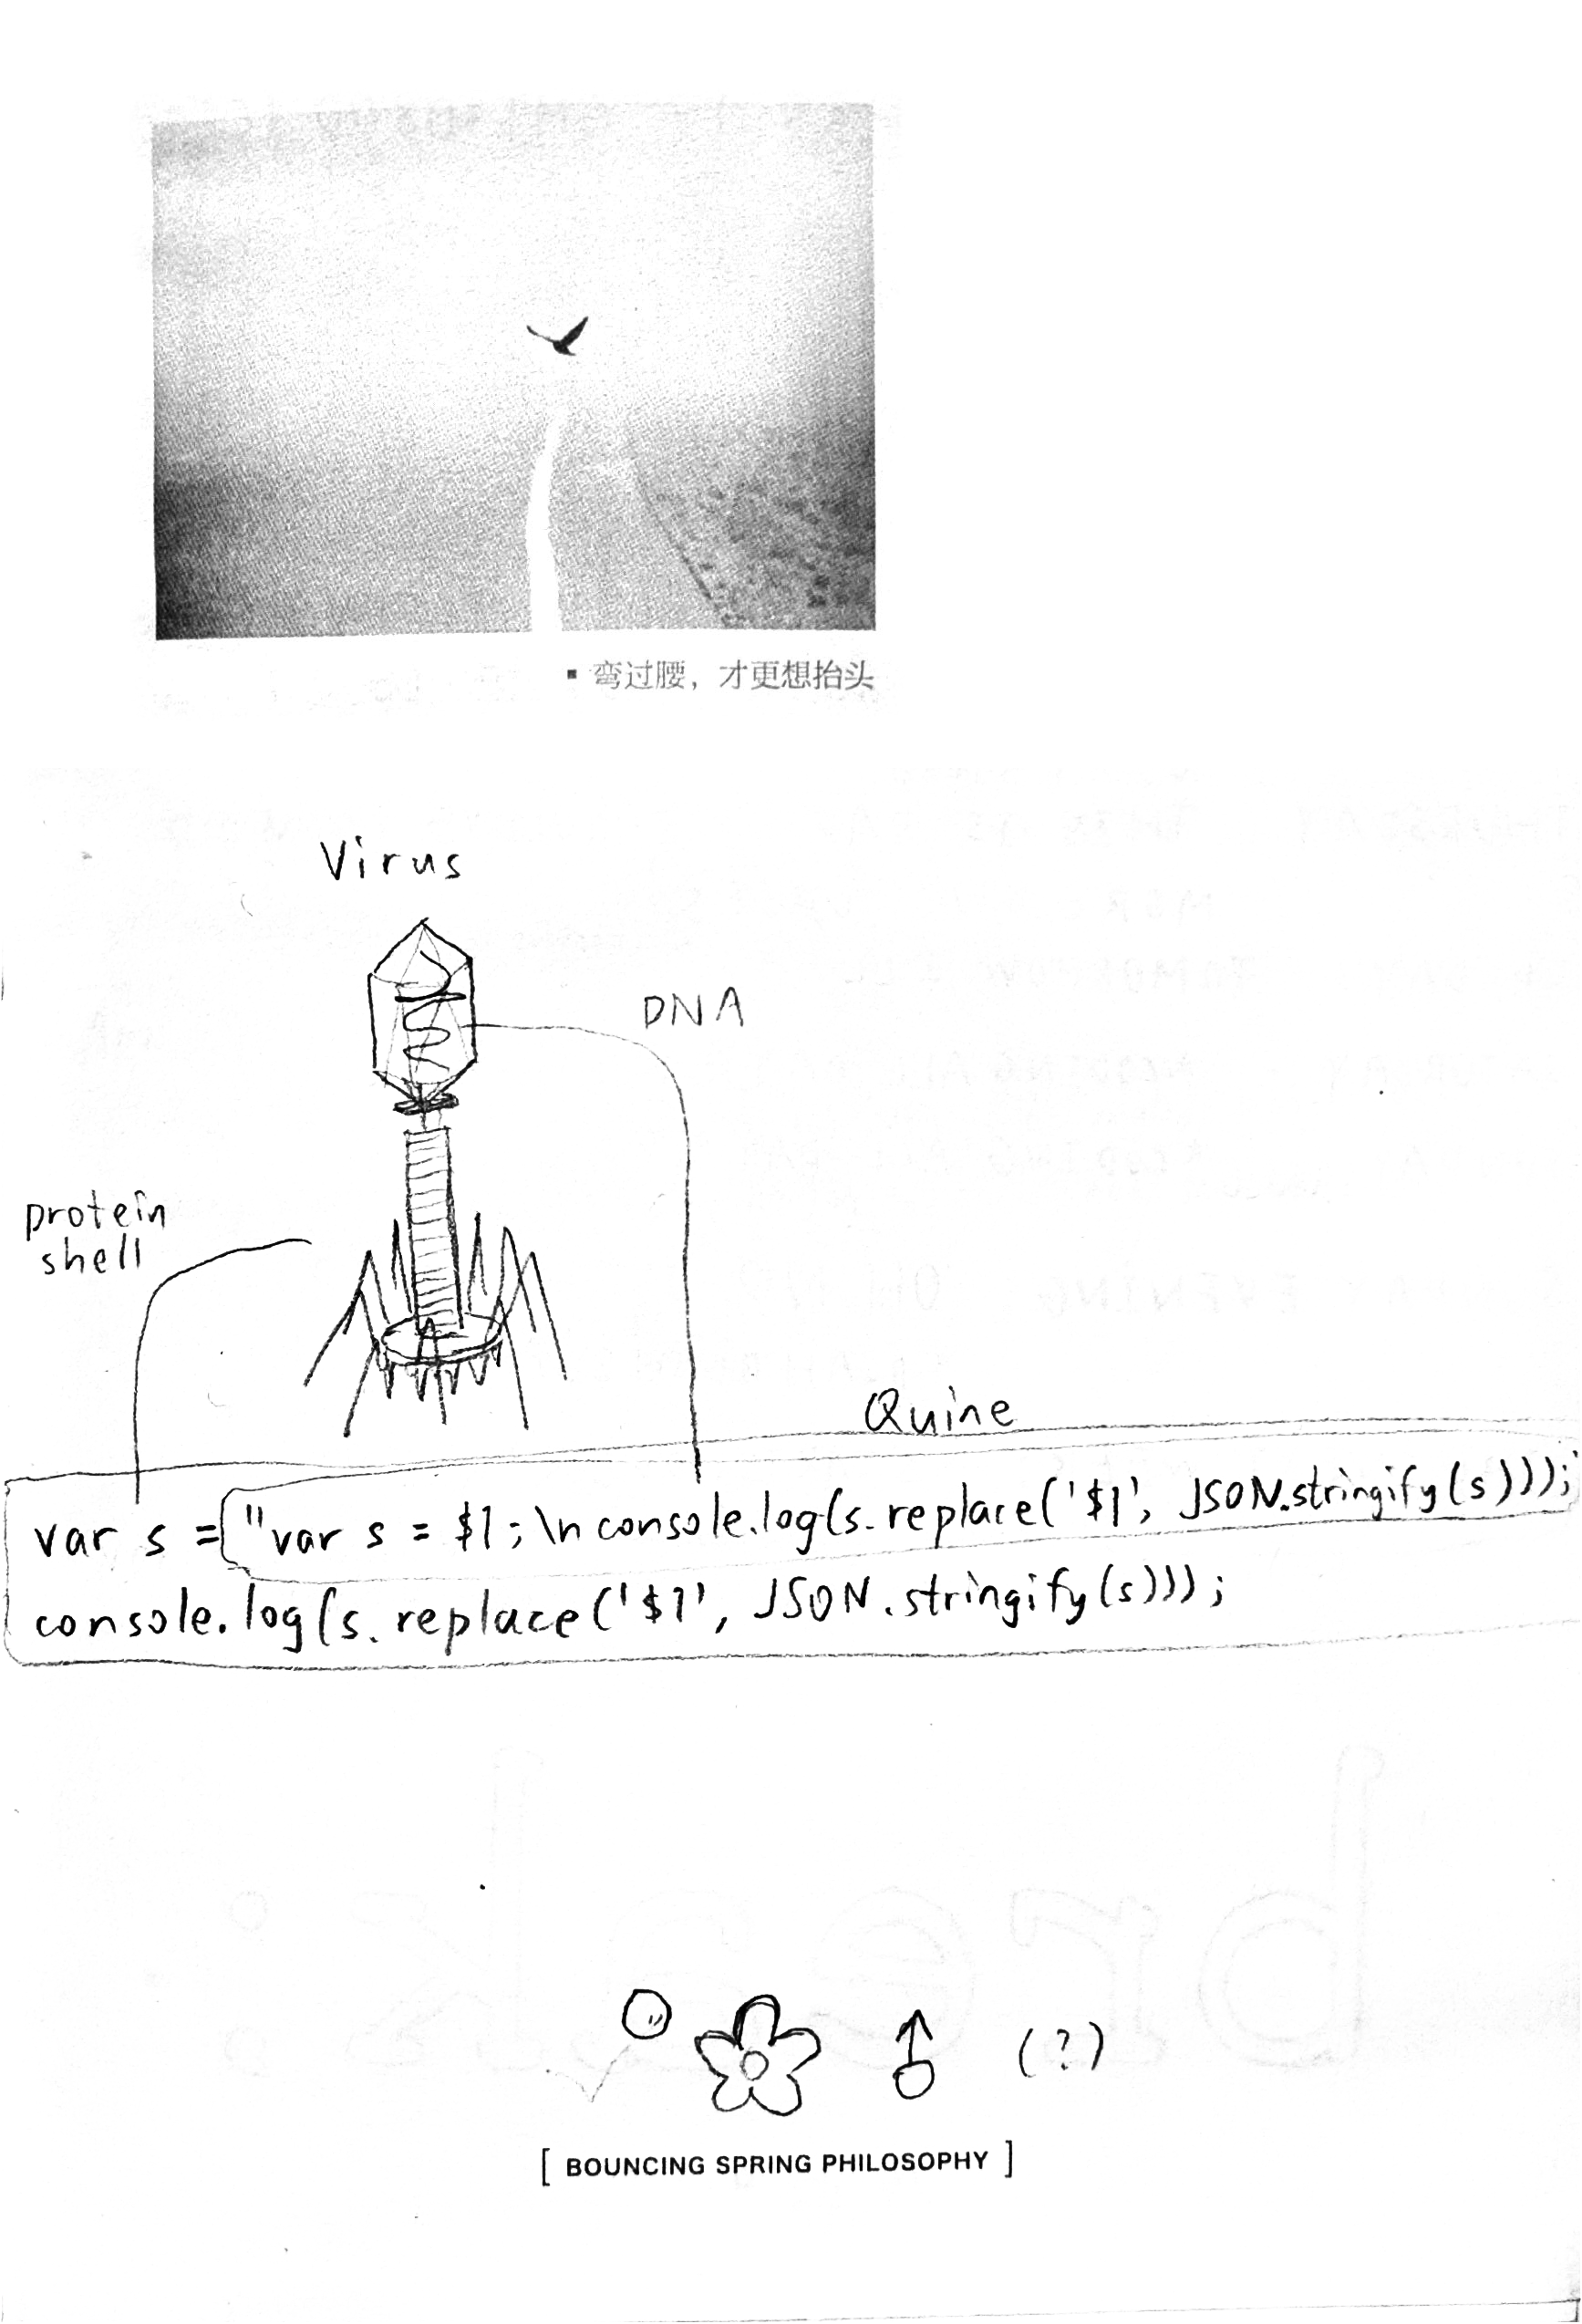 ▪ 弯过腰，才更想抬头
Virus
DNA
protein
shell
Quine
var s = "var s = $1;\nconsole.log(s.replace('$1', JSON.stringify(s)));
console.log(s.replace('$1', JSON.stringify(s)));
(?)
[ BOUNCING SPRING PHILOSOPHY ]